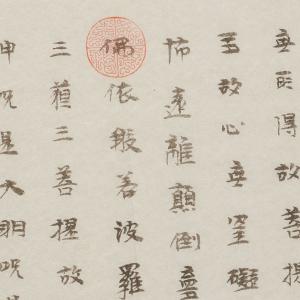 無所得故菩
故心無罣礙
怖遠離顛倒夢
依般若波羅
三藐三菩提故
神呪是大明呪